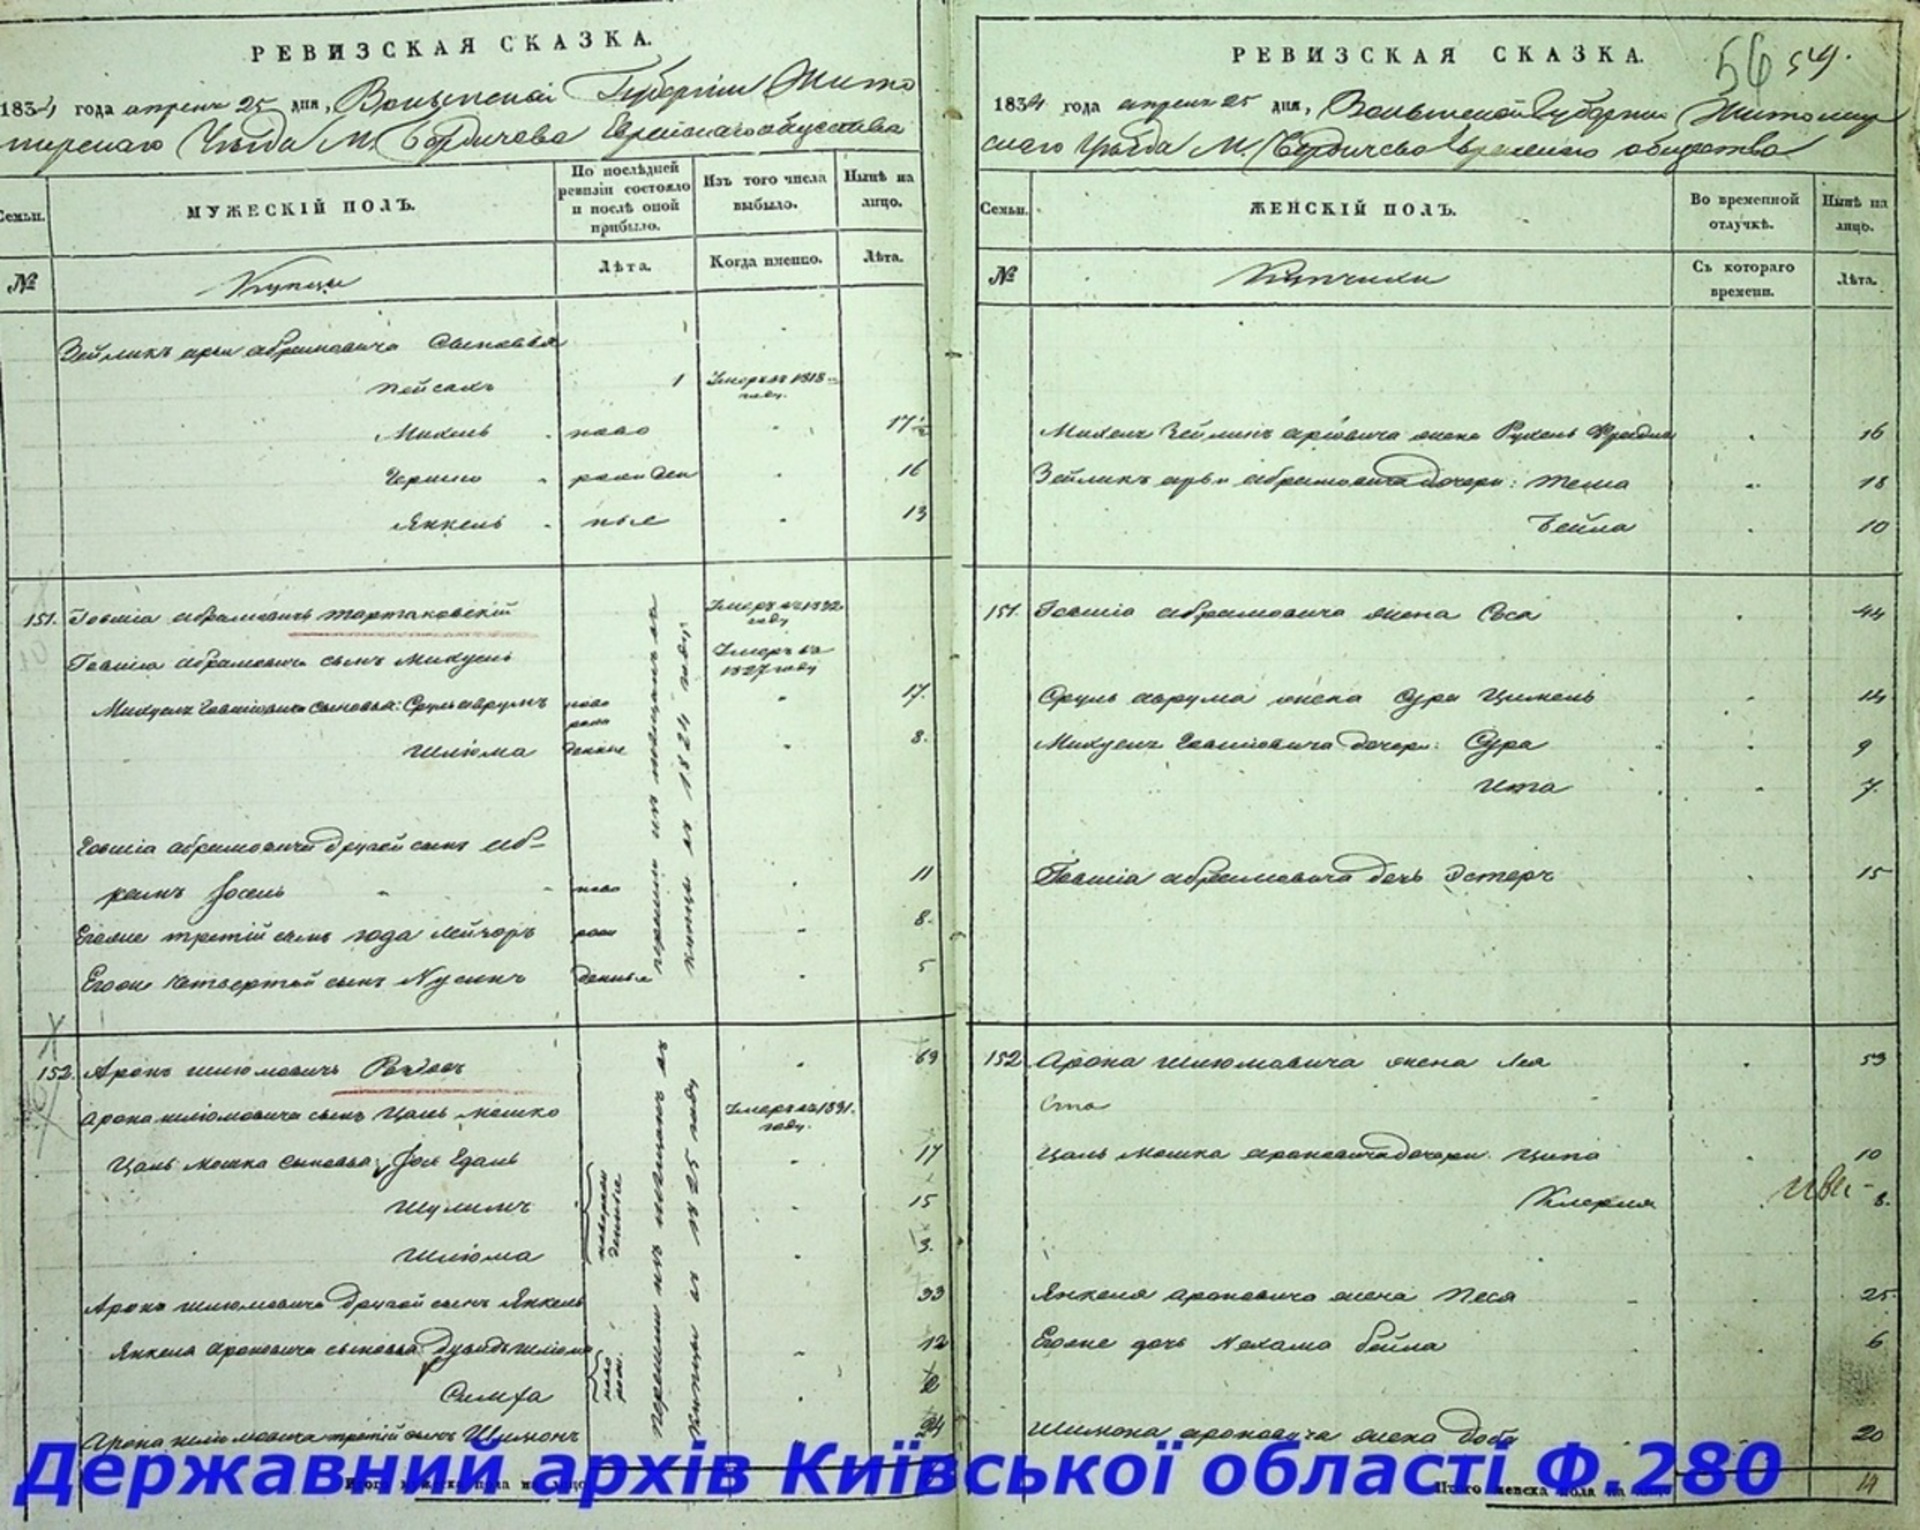 РЕВИЗСКАЯ СКАЗКА.
1834 года апреля 25 дня, Волынской Губернии Жито
мирского Уезда М. Бердичева Еврейского общества
Семьи.
МУЖЕСКІЙ ПОЛЪ.
По послѣдней ревизіи состояло и послѣ оной прибыло.
Изъ того числа выбыло.
Нынѣ на лицо.
№
Купцы
Лѣта.
Когда именно.
Лѣта.
Зейликъ арьи абрамовича сыновья
Пейсахъ 1 Умеръ въ 1818 году.
Михель ново 17 1/2
Гершко рожден 16
Янкель ные 13
151. Іовшіа абрамовичъ тартаковскій Умеръ въ 1832 году
Іовшіа абрамовича сынъ Михуель Умеръ въ 1827 году
Михуеля Іовшіовича сыновья: Сруль аврумъ ново рож 17.
Шліома денные 8.
Іовшіа абрамовича другой сынъ аб-
рамъ Іосель ново 11
Егоже третій сынъ года лейзоръ рож 8.
Егоже четвертой сынъ Нусинъ денные 5
перешли изъ мещанъ въ
купцы въ 1824 году
152. Аронъ шлiомовичъ 69
Арона шлiомовича сынъ Цаль мошко Умеръ въ 1831. году.
Цаль мошка сыновья 17
Шулимъ 15
Шліома 3.
новорожденные
Арона шлiомовича другой сынъ Янкель 33
Янкеля ароновича сыновья Дувидъ шлiома 12
Симха 2
ново рож.
Арона шлiомовича третій сынъ Шимонъ 24
Перешли изъ мещанъ въ
купцы въ 1825 году
Итого мужеска пола на лицо
РЕВИЗСКАЯ СКАЗКА.
56 54.
1834 года апреля 25 дня, Волынской Губернии Житомир
ского Уезда М. Бердичева Еврейского общества
Семьи.
ЖЕНСКІЙ ПОЛЪ.
Во временной отлучкѣ.
Нынѣ на лицо.
№
Купчихи
Съ котораго времени.
Лѣта.
Михеля Зейликъ арiовича жена Рухель Фрейда 16
Зейликъ арьи абрамовича дочери: теша 18
Бейла 10
151. Іовшіа абрамовича жена Соса 44
Сруль аврума жена Сура Цимель 14
Михуеля Іовшіовича дочери: Сура 9
Ита 7.
Іовшіа абрамовича дочь Эстеръ 15
152 Арона шлiомовича жена Лея 53
Цаль мошка ароновича дочери Ципа 10
8.
Янкеля ароновича жена Песя 25
Егоже дочь Нехама бейла 6
Шимона ароновича жена доба 20
Итого женска пола на лицо 14
Державний архів Київської області Ф.280